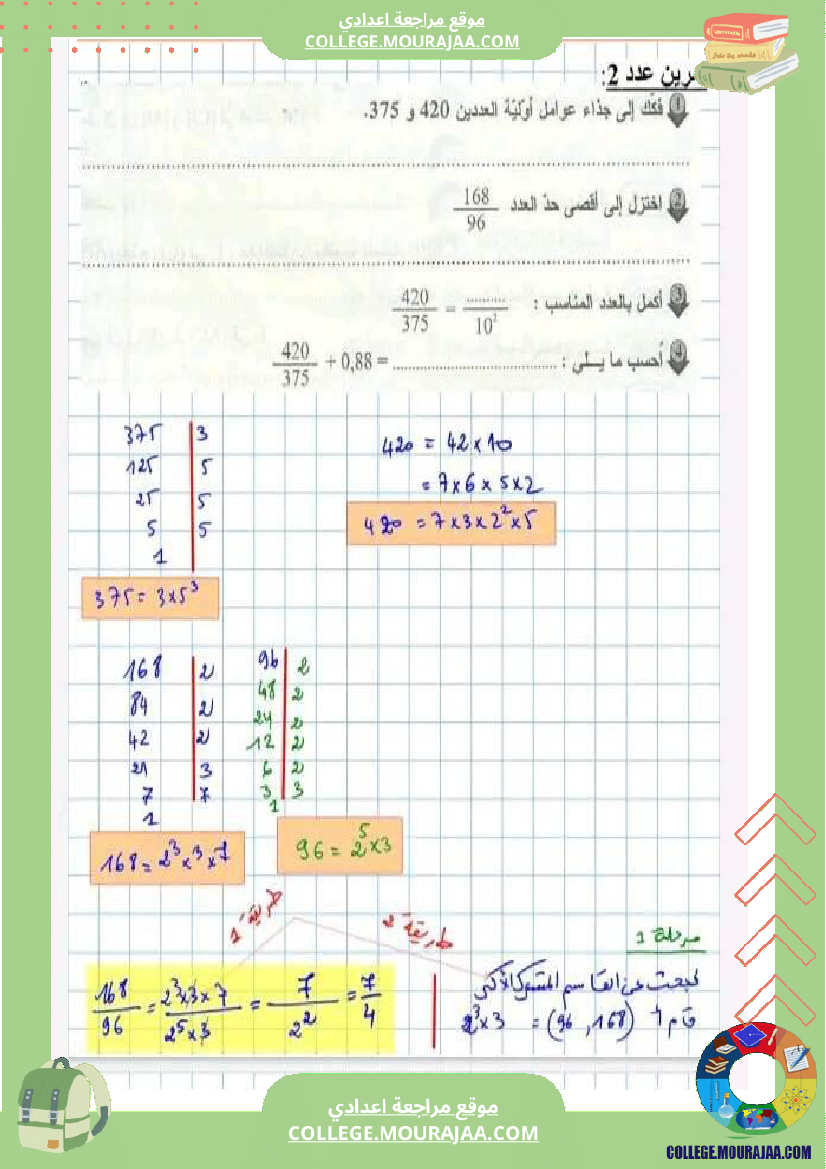 موقع مراجعة اعدادي
COLLEGE.MOURAJAA.COM
مرين عدد 2:
1 فكّك إلى جذاء عوامل أوّليّة العددين 420 و 375.
2 اختزل إلى أقصى حدّ العدد 168/96
3 أكمل بالعدد المناسب : 420/375 = ........../10³
4 أحسب ما يـــلي : 420/375 + 0,88 = ..........
375 | 3
125 | 5
25 | 5
5 | 5
1
375 = 3×5³
420 = 42×10
= 7×6×5×2
420 = 7×3×2²×5
168 | 2
84 | 2
42 | 2
21 | 3
7 | 7
1
168 = 2³×3×7
96 | 2
48 | 2
24 | 2
12 | 2
6 | 2
3 | 3
1
96 = 2⁵×3
طريقة 1
طريقة 2
168/96 = 2³×3×7/2⁵×3 = 7/2² = 7/4
مرحلة 1
نبحث عن القاسم المشترك الأكبر
ق م أ (168 , 96) = 2³×3
موقع مراجعة اعدادي
COLLEGE.MOURAJAA.COM
COLLEGE.MOURAJAA.COM